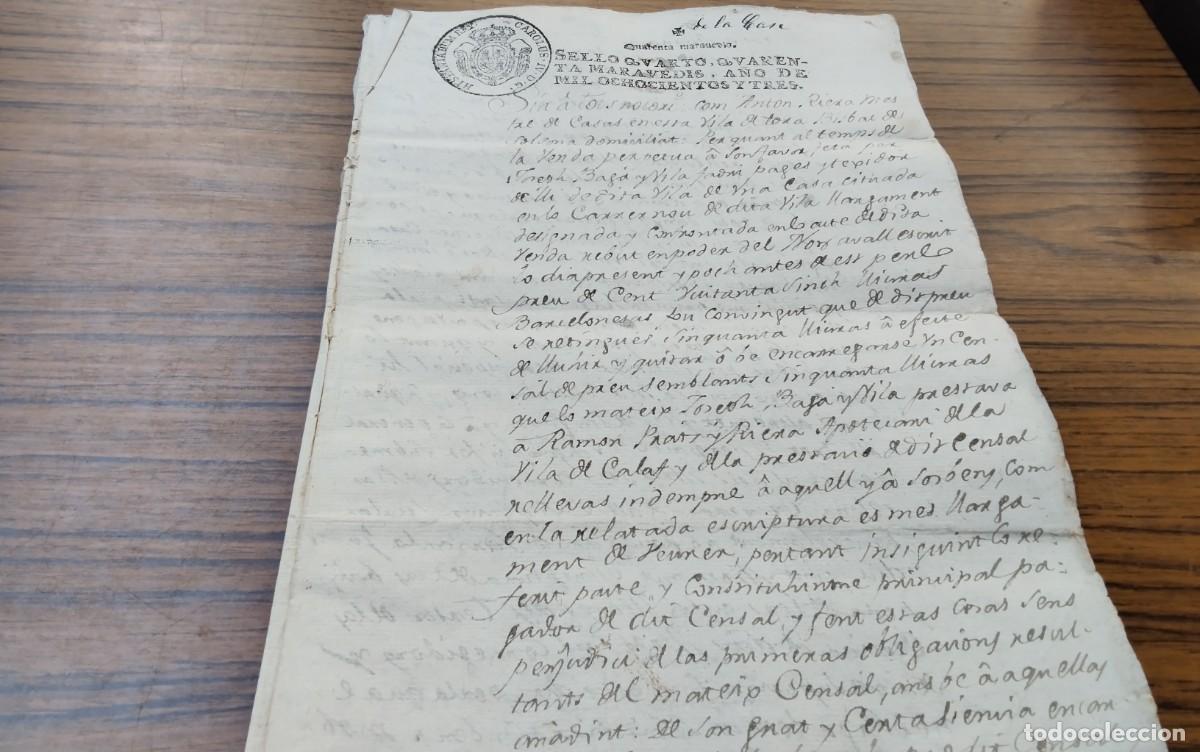 de la Casa
HISPANIARUM REX CAROLUS IV D G
Quarenta maravedis.
SELLO QVARTO, QVAREN-
TA MARAVEDIS, AÑO DE
MIL OCHOCIENTOS Y TRES.
Sia â tots notori com Anton Riera Mes
tre de Casas en esta Vila de tora Bisbat de
Solsona domiciliat: Per quant al temps de
la Venda perpetua â son favor feta per
Joseph Bagá y Vila fadri pages y texidor
de lli de dita Vila de una Casa situada
en lo Carrer nou de dita Vila llargament
designada y confrontada en lo acte de dita
Venda rebut en poder del Noty avall escrit
lo dia present y poch antes de est per lo
preu de Cent Vuitanta Sinch lliuras
Barcelonesas fou convingut que de dit preu
se retingues Sinquanta lliuras â efecte
de lluhir y quitar ô be encarregarse un Cen-
sal de preu semblants Sinquanta lliuras
que lo mateix Joseph Bagá y Vila prestava
â Ramon Prats y Riera Apotecari de la
Vila de Calaf y de la prestació de dit Censal
rellevas indemne â aquell y â sos bens, com
en la relatada escriptura es mes llarga-
ment de veurer, per tant insiguint lo re-
ferit pacte y Constituhintme principal pa-
gador de dit Censal, y fent estas cosas sens
perjudici de las primeras obligacions resul-
tants del mateix Censal, ans be â aquellas
añadint: de son grat y Certa Siencia encar
de dit Censal
todocoleccion